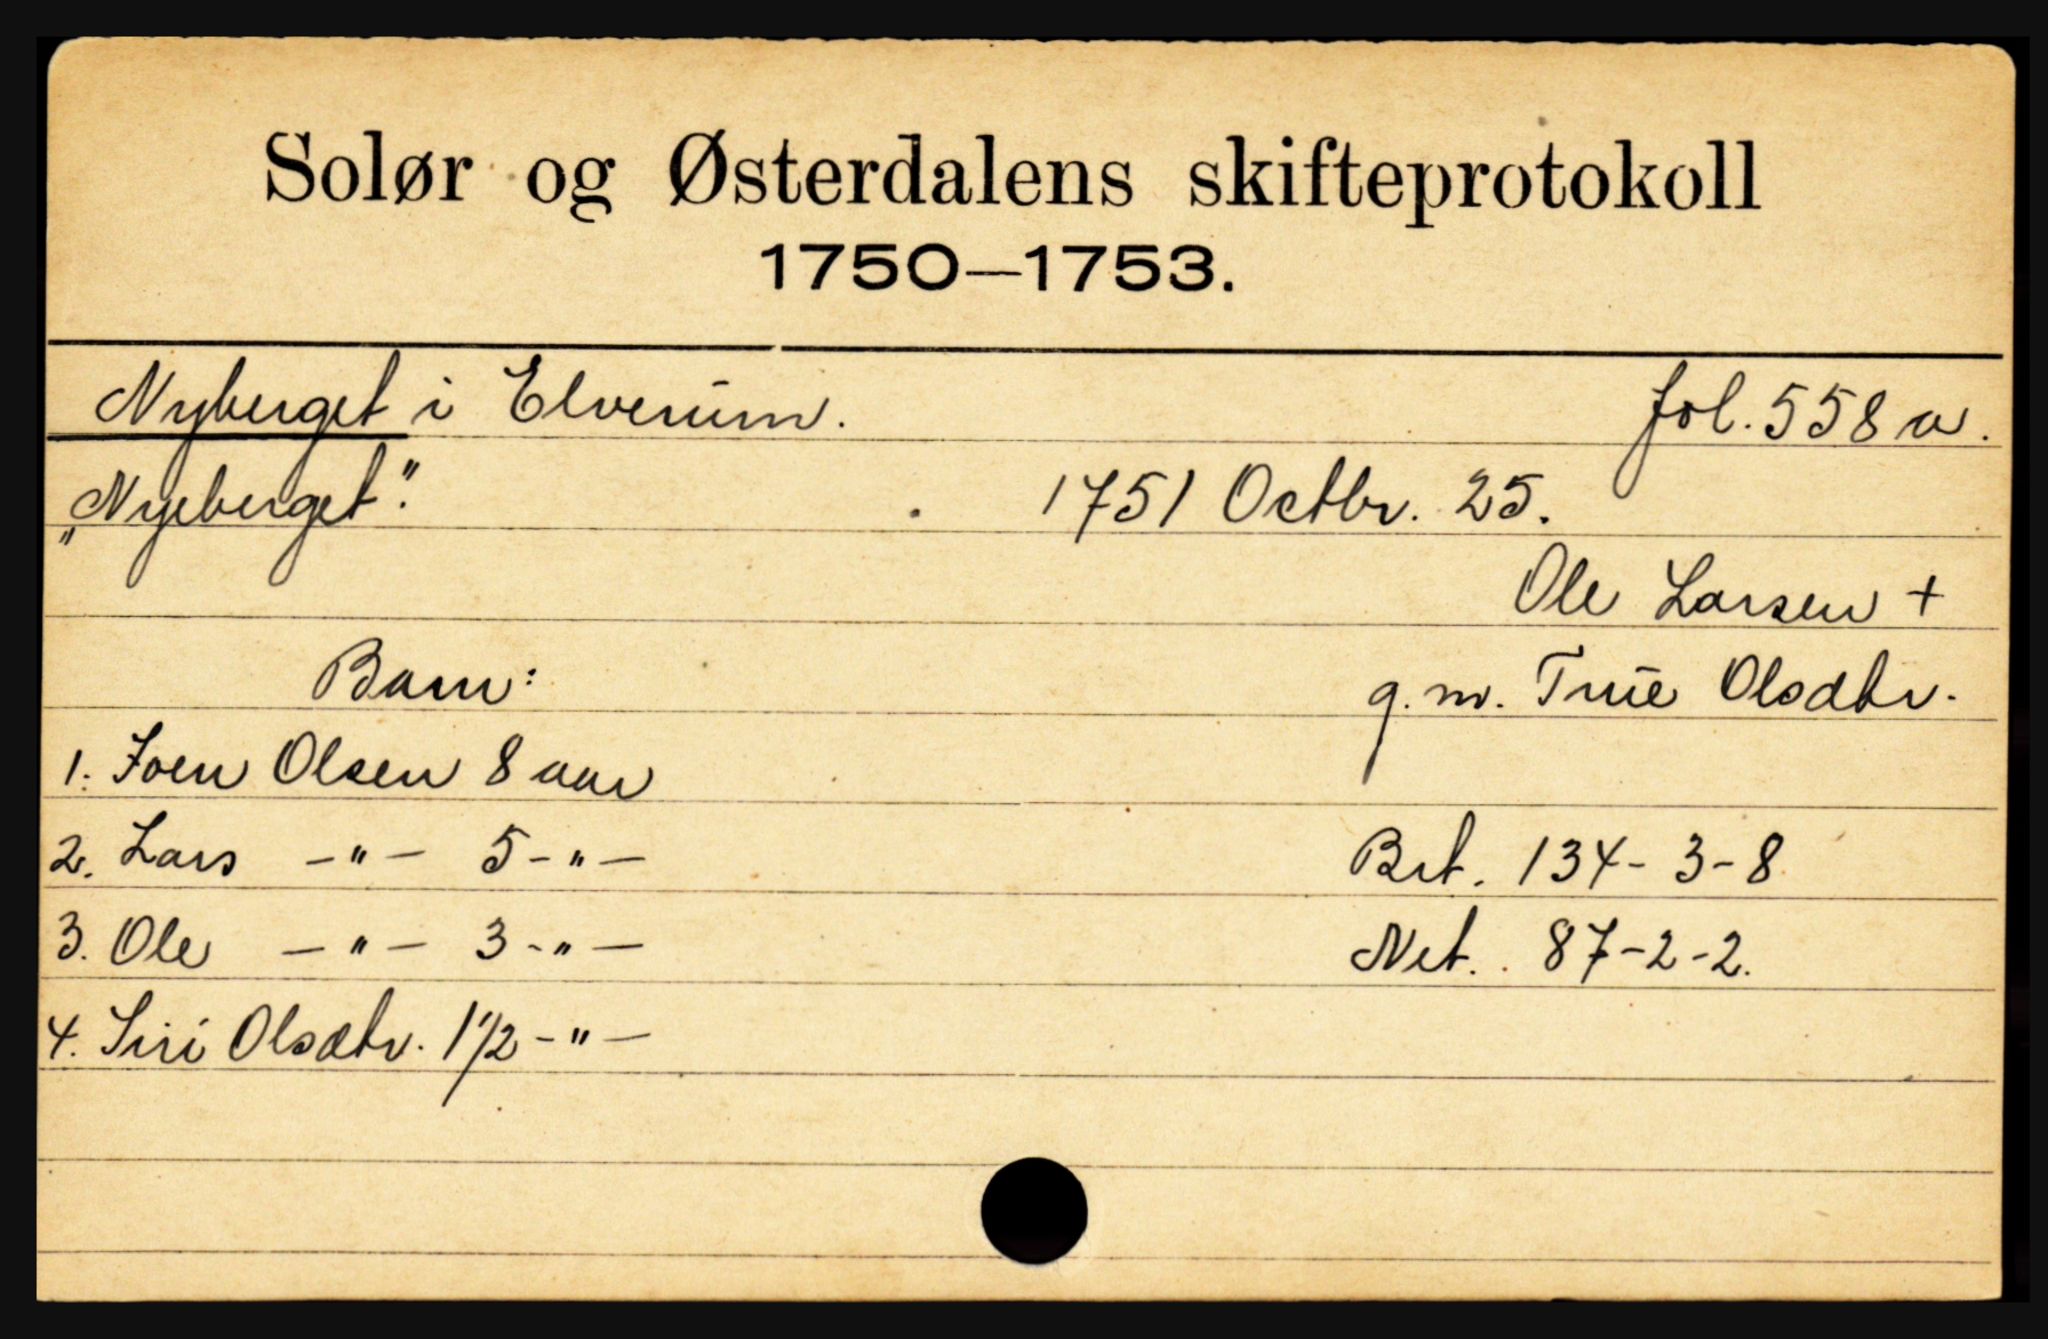 Solør og Østerdalens skifteprotokoll
1750—1753.
Nyberget i Elverum. fol. 558 a.
„Nyeberget“. 1751 Octbr. 25.
Ole Larsen +
Barn: g. m. Olsdtr.
1. Joen Olsen 8 aar
2. Lars — " — 5 - " — Brt. 134 - 3 - 8
3. Ole — " — 3 - " — Net. 87 - 2 - 2.
4. Siri Olsdtr. 1 1/2 - " —